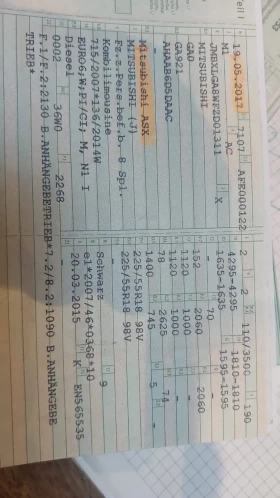 19.05.2017 7107 AFE000122 2
M1 AC
JMBXLGA6WFZD01311 X
MITSUBISHI
GA0
GA921
AHAAB6D5DAAC
-
MITSUBISHI (J)
Mitsubishi ASX
Fz.z.Pers.bef.b. 8 Spl.
Kombilimousine
715/2007*136/2014W
EURO6;W;PI/CI; M, N1 I
Diesel
0002 36W0 2268
F.1/F.2:2130 B.ANHÄNGEBETRIEB*7.2/8.2:1090 B.ANHÄNGEBE
TRIEB*
2 110/3500 190
4295-4295 1810-1810
1635-1635 1595-1595
- 70 2060
152 2060
1120 1000
1120 1000
78 2625 74
1400 745 5 -
225/55R18 98V
225/55R18 98V
-
Schwarz 9
e1*2007/46*0368*10
20.03.2015 K EN565535
-